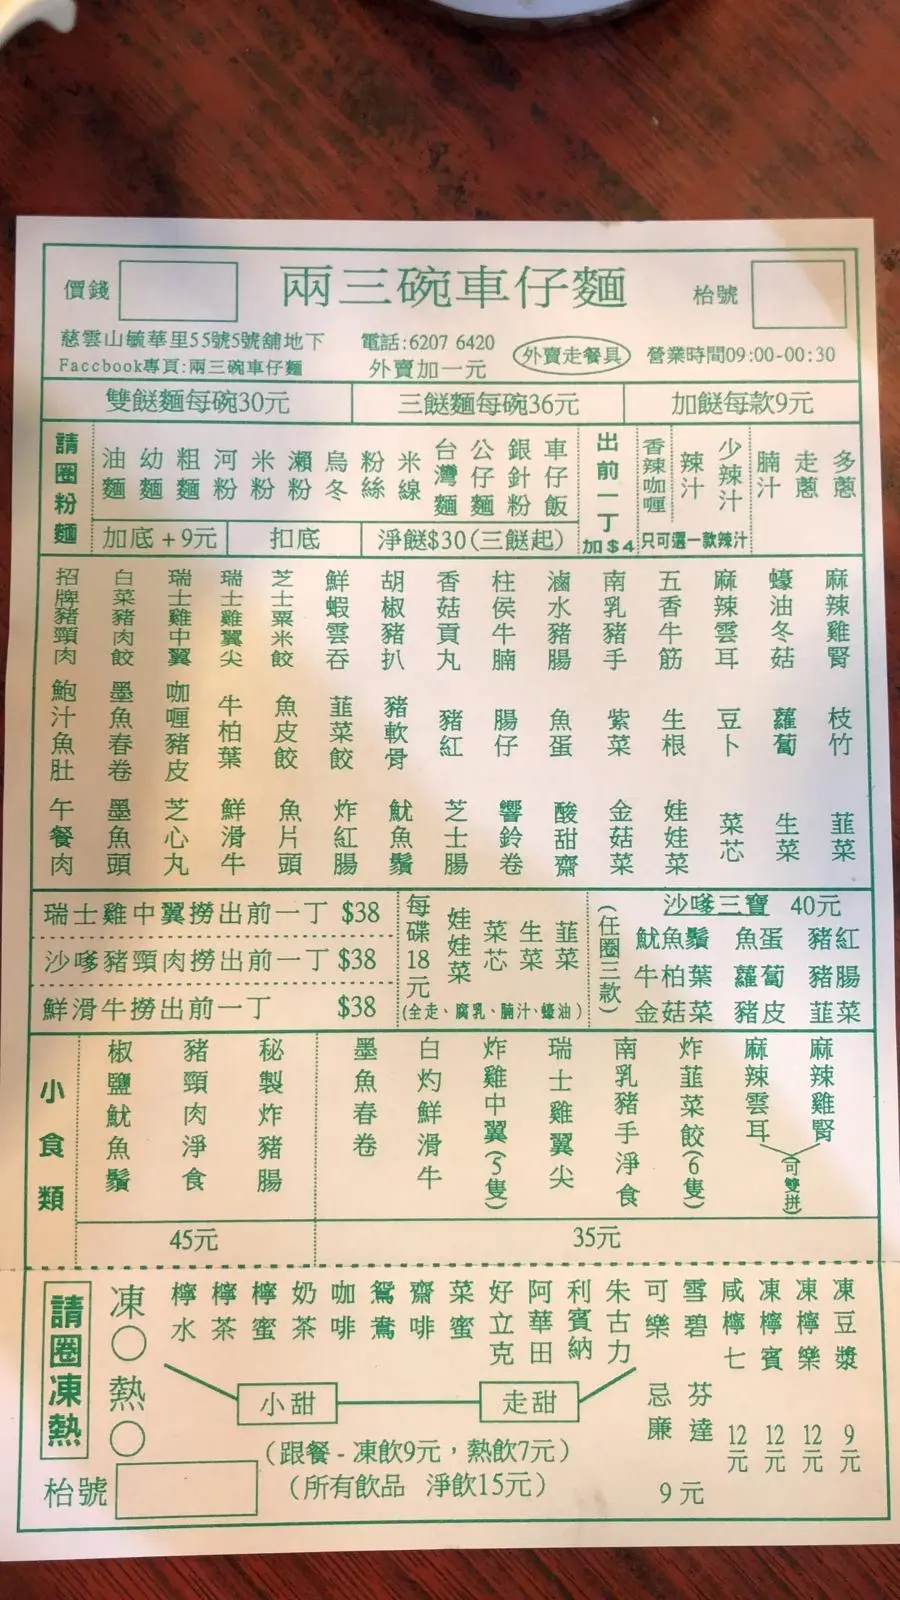 價錢
兩三碗車仔麵
枱號
慈雲山毓華里55號5號舖地下
電話:6207 6420
Faccbook專頁:兩三碗車仔麵
外賣加一元
外賣走餐具
營業時間09:00-00:30
雙餸麵每碗30元
三餸麵每碗36元
加餸每款9元
請圈粉麵
油麵
幼麵
粗麵
河粉
米粉
瀨粉
烏冬
粉絲
米線
台灣麵
公仔麵
銀針粉
車仔飯
加底+9元
扣底
淨餸$30(三餸起)
出前一丁
加$4
香辣咖喱
辣汁
少辣汁
只可選一款辣汁
腩汁
走蔥
多蔥
招牌豬頸肉
白菜豬肉餃
瑞士雞中翼
瑞士雞翼尖
芝士粟米餃
鮮蝦雲吞
胡椒豬扒
香菇貢丸
柱侯牛腩
滷水豬腸
南乳豬手
五香牛筋
麻辣雲耳
蠔油冬菇
麻辣雞腎
鮑汁魚肚
墨魚春卷
咖喱豬皮
牛柏葉
魚皮餃
韮菜餃
豬軟骨
豬紅
腸仔
魚蛋
紫菜
生根
豆卜
蘿蔔
枝竹
午餐肉
墨魚頭
芝心丸
鮮滑牛
魚片頭
炸紅腸
魷魚鬚
芝士腸
響鈴卷
酸甜齋
金菇菜
娃娃菜
菜芯
生菜
韮菜
瑞士雞中翼撈出前一丁 $38
沙嗲豬頸肉撈出前一丁 $38
鮮滑牛撈出前一丁 $38
每碟18元
娃娃菜
菜芯
生菜
韮菜
(全走、腐乳、腩汁、蠔油)
(任圈三款)
沙嗲三寶 40元
魷魚鬚 魚蛋 豬紅
牛柏葉 蘿蔔 豬腸
金菇菜 豬皮 韮菜
小食類
椒鹽魷魚鬚
豬頸肉淨食
秘製炸豬腸
45元
墨魚春卷
白灼鮮滑牛
炸雞中翼(5隻)
瑞士雞翼尖
南乳豬手淨食
炸韮菜餃(6隻)
麻辣雲耳
麻辣雞腎
(可雙拼)
35元
請圈凍熱
凍〇熱〇
檸水
檸茶
檸蜜
奶茶
咖啡
鴛鴦
齋啡
菜蜜
好立克
阿華田
利賓納
朱古力
小甜
走甜
(跟餐-凍飲9元，熱飲7元)
(所有飲品 淨飲15元)
可樂
雪碧
忌廉
芬達
9元
咸檸七 12元
凍檸賓 12元
凍檸樂 12元
凍豆漿 9元
枱號